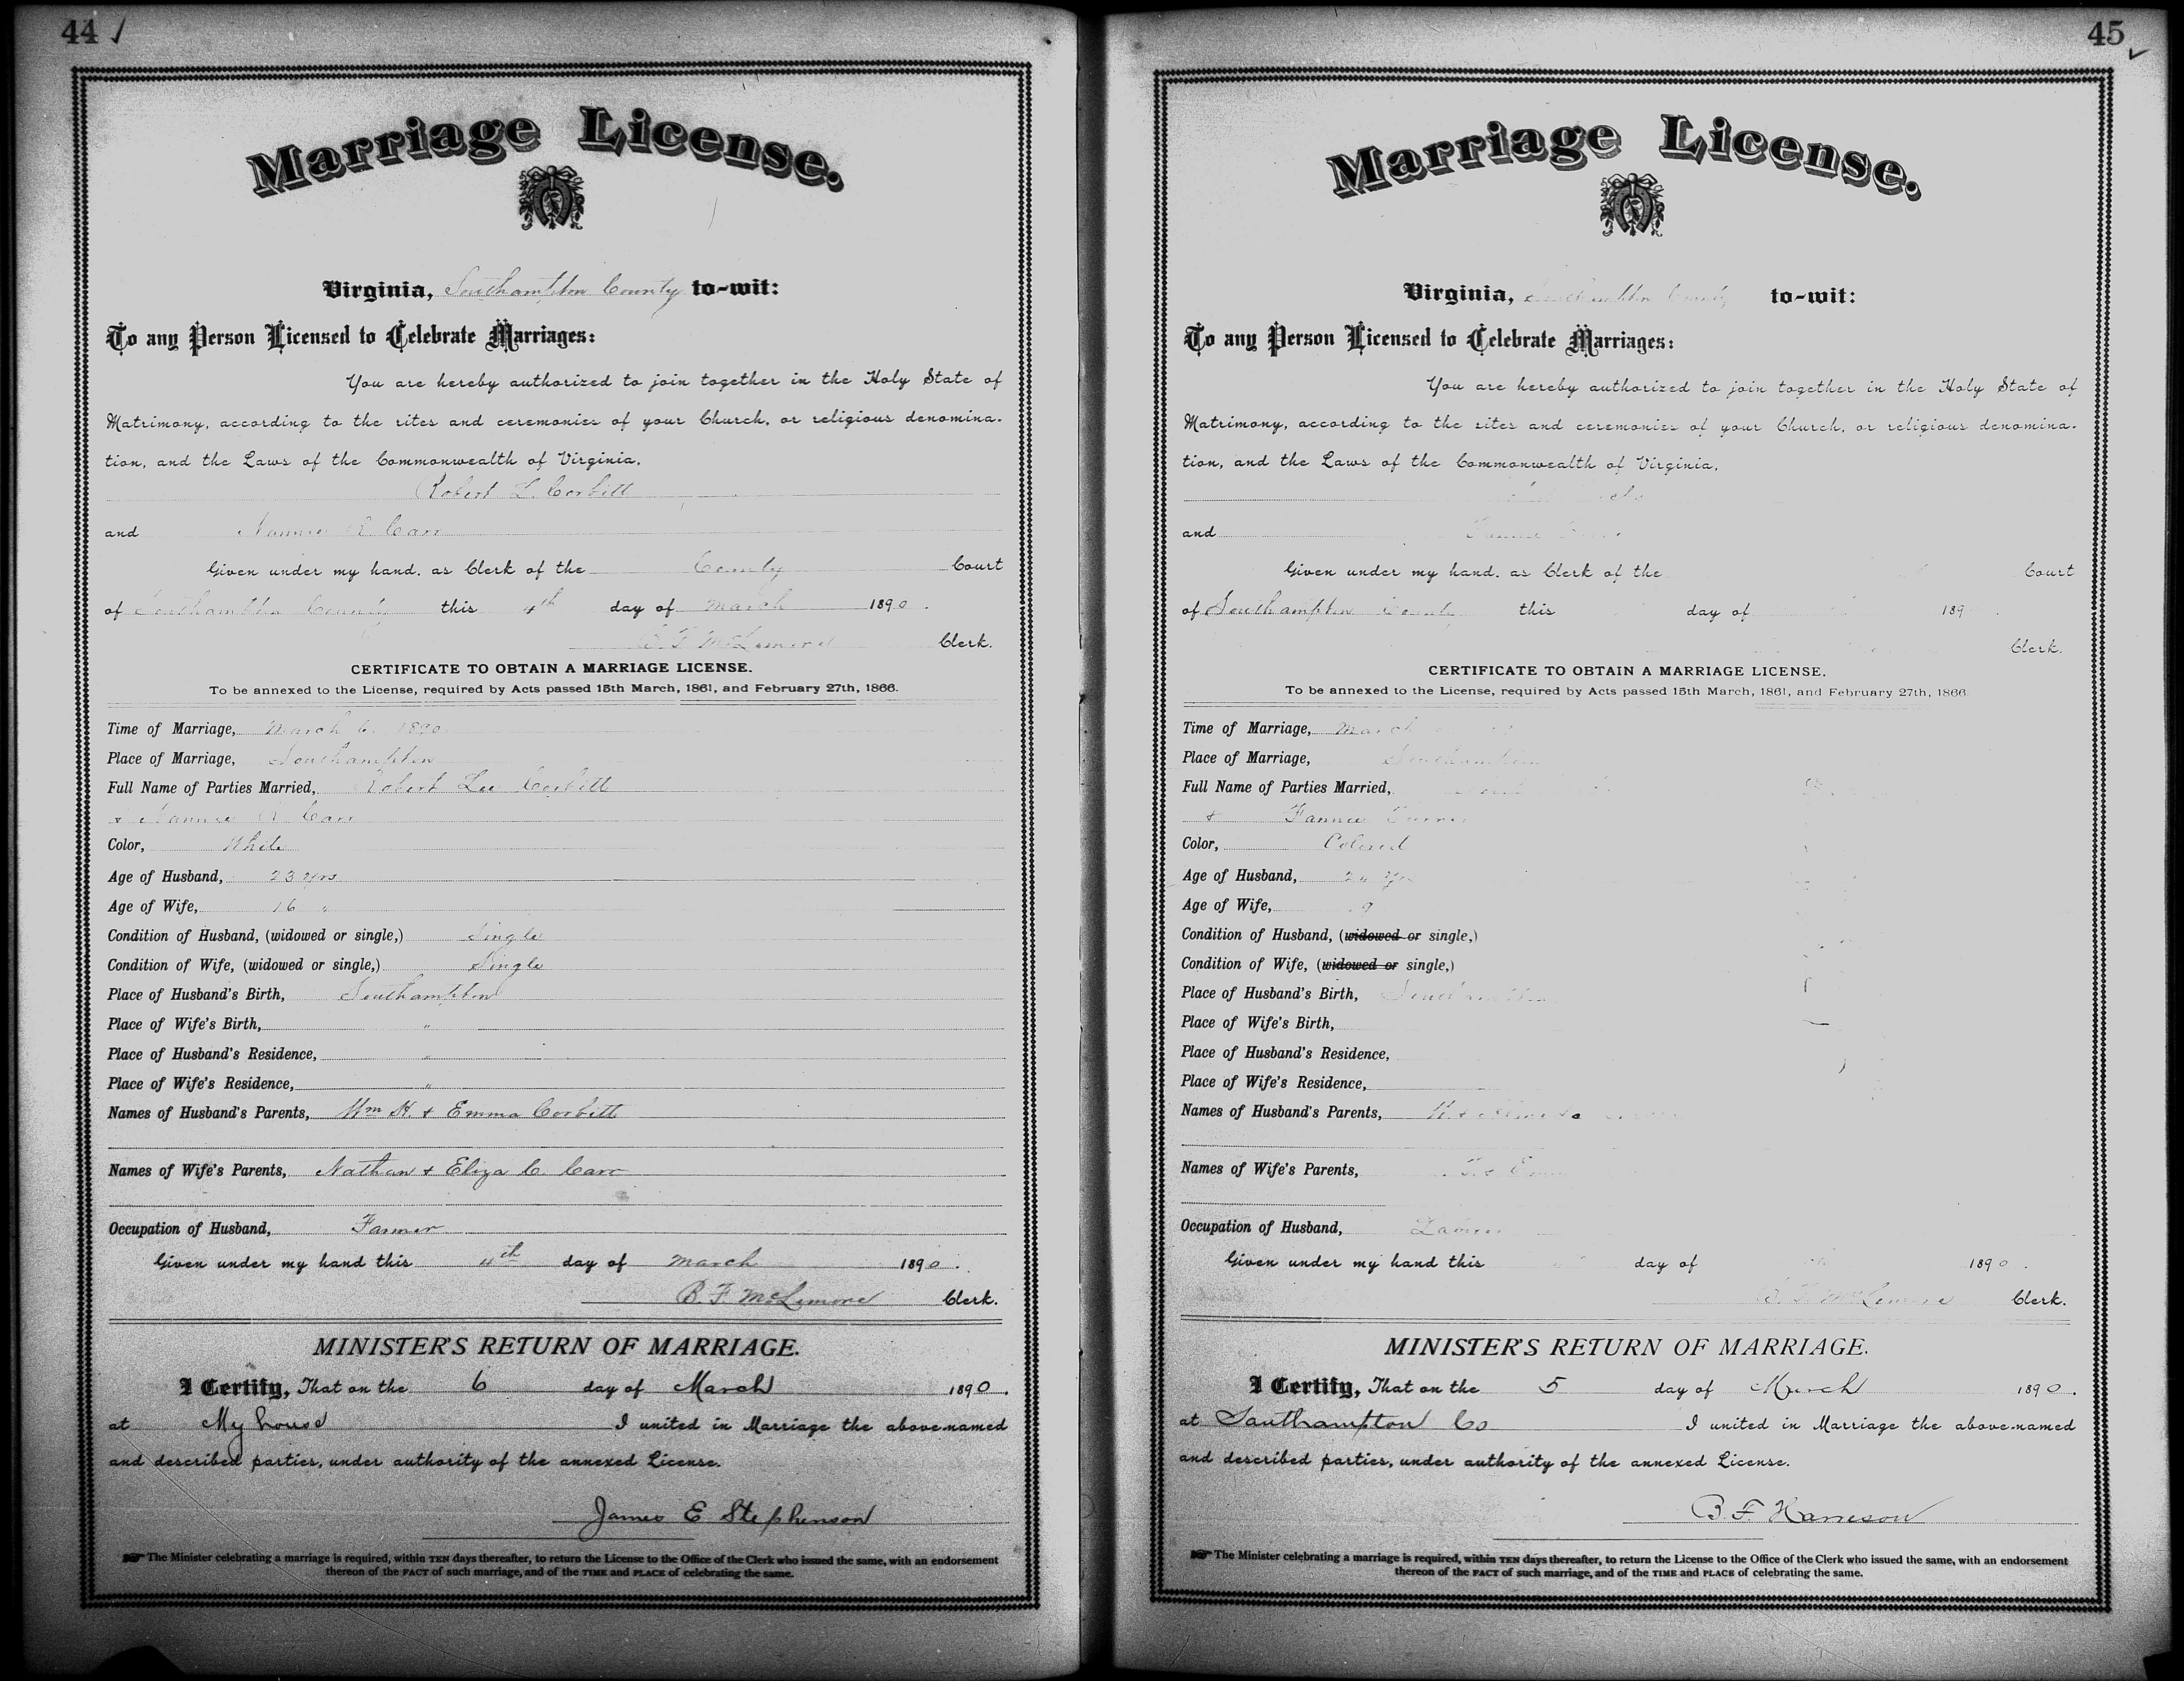 44
Marriage License.
Virginia, Southampton County to-wit:
To any Person Licensed to Celebrate Marriages:
You are hereby authorized to join together in the Holy State of
Matrimony, according to the rites and ceremonies of your Church, or religious denomina-
tion, and the Laws of the Commonwealth of Virginia,
Robert L. Corbitt
and Nannie R. Carr
Given under my hand, as Clerk of the County Court
of Southampton County this 4th day of March 1890.
B. F. McLemore Clerk.
CERTIFICATE TO OBTAIN A MARRIAGE LICENSE.
To be annexed to the License, required by Acts passed 15th March, 1861, and February 27th, 1866.
Time of Marriage, March 6, 1890
Place of Marriage, Southampton
Full Name of Parties Married, Robert Lee Corbitt
+ Nannie R. Carr
Color, White
Age of Husband, 23 yrs
Age of Wife, 16 "
Condition of Husband, (widowed or single,) Single
Condition of Wife, (widowed or single,) Single
Place of Husband's Birth, Southampton
Place of Wife's Birth, "
Place of Husband's Residence, "
Place of Wife's Residence, "
Names of Husband's Parents, Wm H. + Emma Corbitt
Names of Wife's Parents, Nathan + Eliza C. Carr
Occupation of Husband, Farmer
Given under my hand this 4th day of March 1890.
B. F. McLemore Clerk.
MINISTER'S RETURN OF MARRIAGE.
I Certify, That on the 6 day of March 1890.
at My house I united in Marriage the above-named
and described parties, under authority of the annexed License.
James E Stephenson
The Minister celebrating a marriage is required, within TEN days thereafter, to return the License to the Office of the Clerk who issued the same, with an endorsement
thereon of the FACT of such marriage, and of the TIME and PLACE of celebrating the same.
45
Marriage License.
Virginia, Southampton County to-wit:
To any Person Licensed to Celebrate Marriages:
You are hereby authorized to join together in the Holy State of
Matrimony, according to the rites and ceremonies of your Church, or religious denomina-
tion, and the Laws of the Commonwealth of Virginia,
and Fannie
Given under my hand, as Clerk of the Court
of Southampton County this day of 189
Clerk.
CERTIFICATE TO OBTAIN A MARRIAGE LICENSE.
To be annexed to the License, required by Acts passed 15th March, 1861, and February 27th, 1866
Time of Marriage, March
Place of Marriage, Southampton
Full Name of Parties Married,
+ Fannie
Color, Colored
Age of Husband, 24 yrs
Age of Wife, 9
Condition of Husband, (widowed or single,)
Condition of Wife, (widowed or single,)
Place of Husband's Birth, Southampton
Place of Wife's Birth,
Place of Husband's Residence,
Place of Wife's Residence,
Names of Husband's Parents,
Names of Wife's Parents,
Occupation of Husband,
Given under my hand this day of 1890.
B. F. McLemore Clerk.
MINISTER'S RETURN OF MARRIAGE.
I Certify, That on the 5 day of March 1890.
at Southampton Co I united in Marriage the above-named
and described parties, under authority of the annexed License.
B. F. Harrison
The Minister celebrating a marriage is required, within TEN days thereafter, to return the License to the Office of the Clerk who issued the same, with an endorsement
thereon of the FACT of such marriage, and of the TIME and PLACE of celebrating the same.